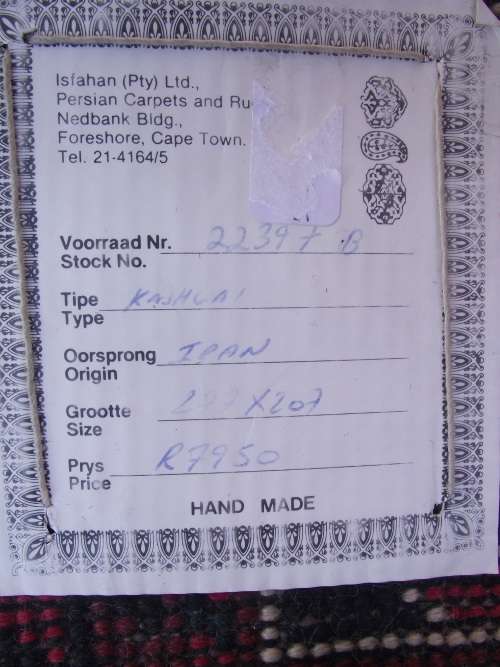 Isfahan (Pty) Ltd.,
Persian Carpets and Ru
Nedbank Bldg.,
Foreshore, Cape Town.
Tel. 21-4164/5
Voorraad Nr. 22397 B
Stock No.
Tipe KASHGAI
Type
Oorsprong IRAN
Origin
Grootte X207
Size
Prys R7950
Price
HAND MADE